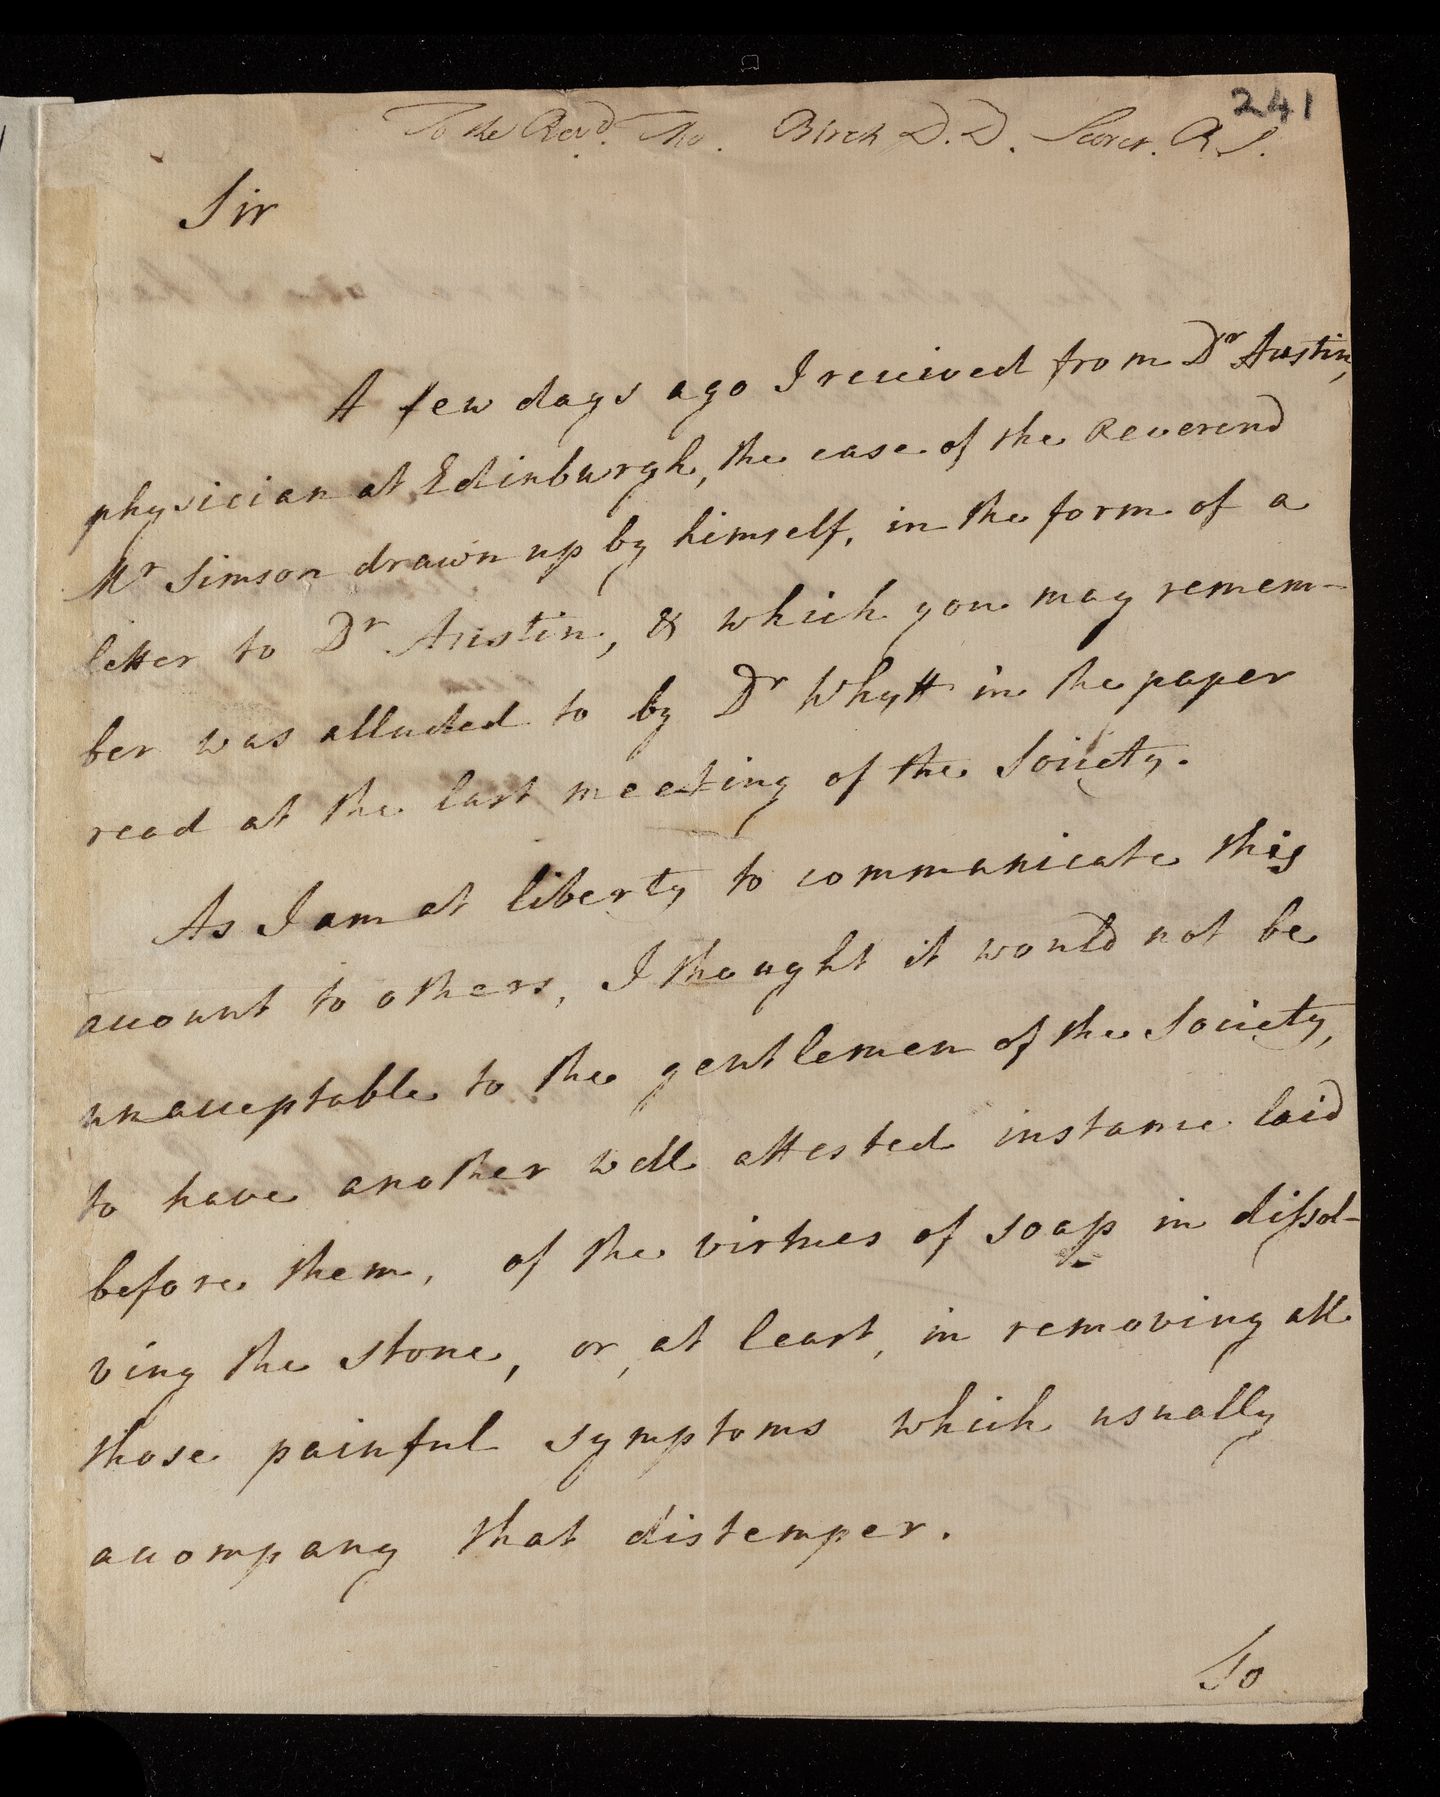 241
To the Revd. Tho. Birch D.D. Secret. R.S.
Sir
A few days ago I received from Dr Austin,
physician at Edinburgh, the case of the Reverend
Mr Simson drawn up by himself, in the form of a
letter to Dr Austin, & which you may remem-
ber was alluded to by Dr Whytt in the paper
read at the last meeting of the Society.
As I am at liberty to communicate this
account to others, I thought it would not be
unacceptable to the gentlemen of the Society,
to have another well attested instance laid
before them, of the virtues of soap in dissol-
ving the stone, or, at least, in removing all
those painful symptoms which usually
accompany that distemper.
So